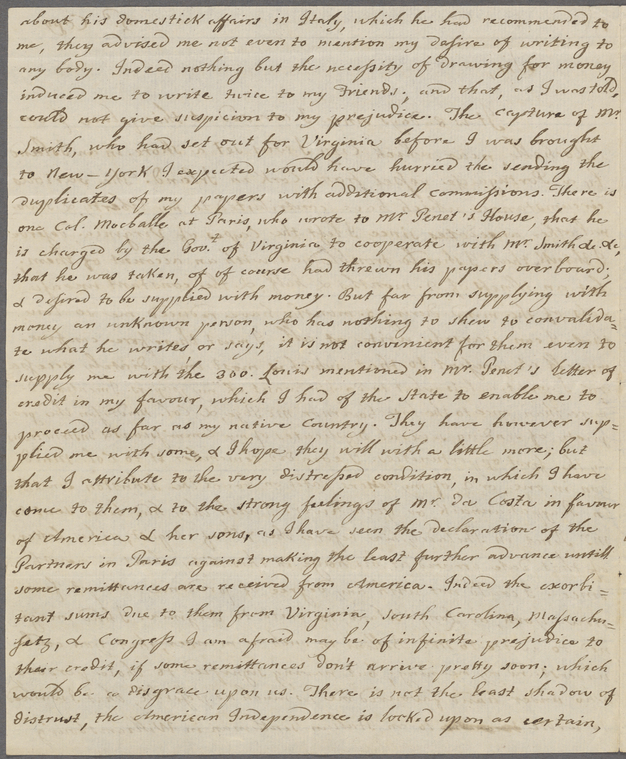 about his domestick affairs in Italy, which he had recommended to
me, they advised me not even to mention my desire of writing to
any body. Indeed nothing but the necessity of drawing for money
induced me to write twice to my Friends; and that, as I was told,
could not give suspicion to my prejudice. The capture of Mr.
Smith, who had set out for Virginia before I was brought
to New-York I expected would have hurried the sending the
duplicates of my papers with additional commissions. There is
one Col. Macballe at Paris, who wrote to Mr. Penet's House, that he
is charged by the Govt. of Virginia to cooperate with Mr. Smith &c. &c,
that he was taken, of of course had threwn his papers overboard;
& desired to be supplied with money. But far from supplying with
money an unknown person, who has nothing to shew to convalida=
te what he writes or says, it is not convenient for them even to
supply me with the 300. Louis mentioned in Mr. Penet's letter of
credit in my favour, which I had of the State to enable me to
proceed as far as my native Country. They have however sup=
plied me with some, & I hope they will with a little more; but
that I attribute to the very distressed condition, in which I have
come to them, & to the strong feelings of Mr. da Costa in favour
of America & her sons, as I have seen the declaration of the
Partners in Paris against making the least further advance untill
some remittances are received from America. Indeed the exorbi=
tant sums due to them from Virginia, South Carolina, Massachu=
setz, & Congress I am afraid may be of infinite prejudice to
their credit, if some remittances don't arrive pretty soon; which
would be a disgrace upon us. There is not the least shadow of
distrust, the American Independence is looked upon as certain,